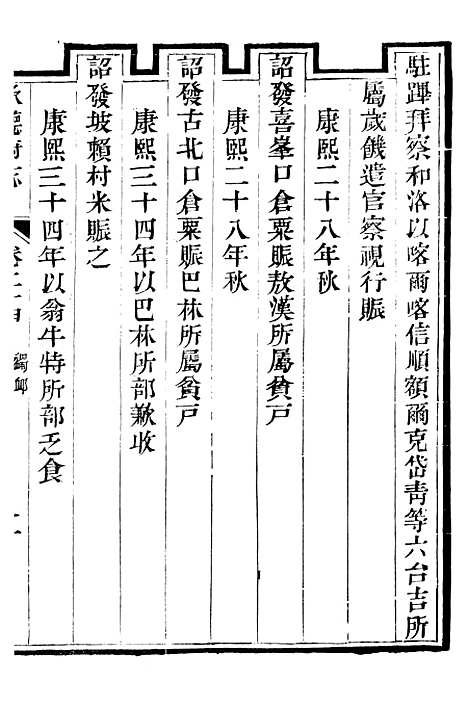 駐蹕拜察和洛以喀爾喀信順額爾克岱靑等六台吉所
屬歲饑遣官察視行賑
康熙二十八年秋
詔發喜峯口倉粟賑敖漢所屬貧戸
康熙二十八年秋
詔發古北口倉粟賑巴林所屬貧戸
康熙三十四年以巴林所部歉收
詔發坡賴村米賑之
康熙三十四年以翁牛特所部乏食
承德府志
卷二十四
蠲卹